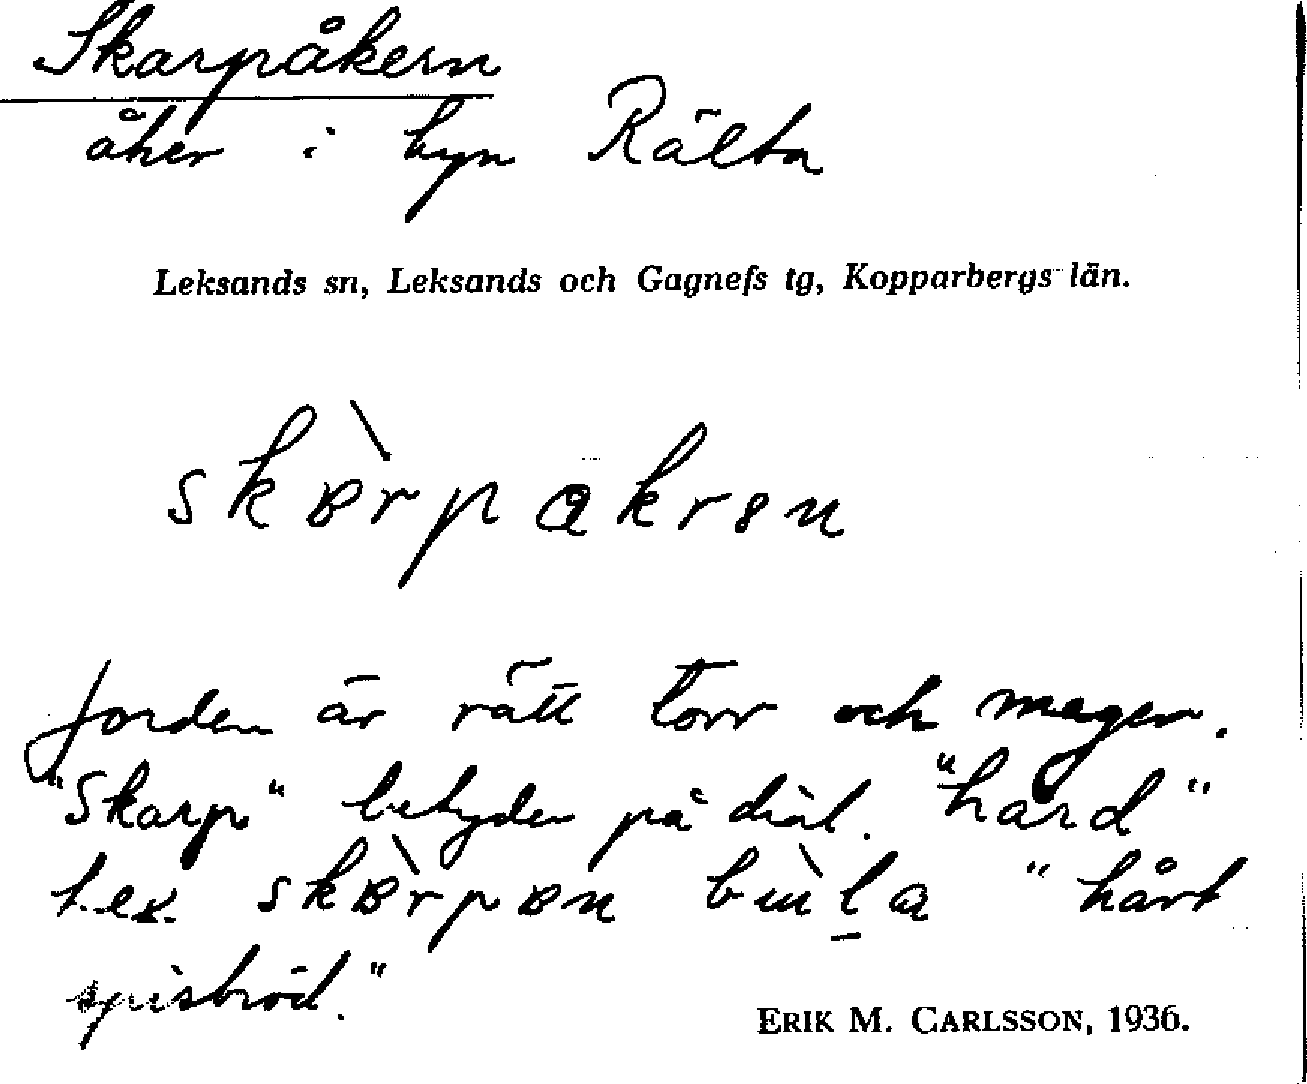 Skarpåkern
åker i byn Rälta
Leksands sn, Leksands och Gagnefs tg, Kopparbergs län.
skɐ̀rpakrən
Jorden är rätt torr och mager.
"Skarp" betyder på dial. "hård"
t.ex. skɐ̀rpɐn "hårt
spisbröd."
ERIK M. CARLSSON, 1936.